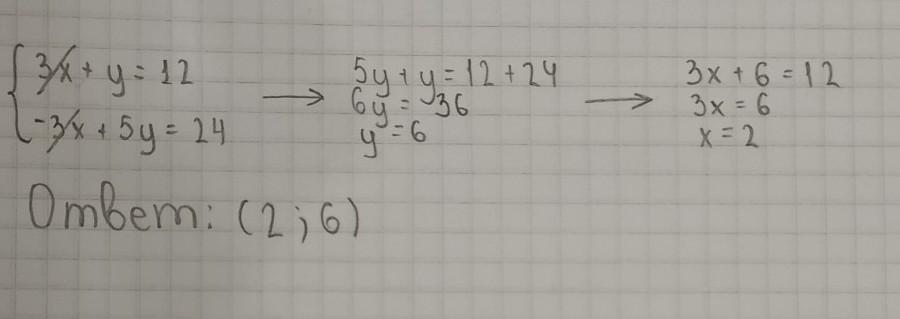 3x + y = 12
-3x + 5y = 24
→
5y + y = 12 + 24
6y = 36
y = 6
→
3x + 6 = 12
3x = 6
x = 2
Ответ: (2; 6)